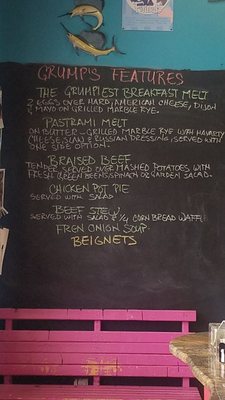 GRUMP'S FEATURES
THE GRUMPIEST BREAKFAST MELT
2 EGGS OVER HARD, AMERICAN CHEESE, DIJON
& MAYO ON GRILLED MARBLE RYE.
PASTRAMI MELT
ON BUTTER-GRILLED MARBLE RYE WITH HAVARTY
CHEESE, SLAW & RUSSIAN DRESSING, SERVED WITH
ONE SIDE OPTION.
BRAISED BEEF
TENDER SERVED OVER MASHED POTATOES, WITH
FRESH GREEN BEENS/SPINACH OR GARDEN SALAD.
CHICKEN POT PIE
SERVED WITH SALAD
BEEF STEW
SERVED WITH SALAD & 1/4 CORN BREAD WAFFL
FREN ONION SOUP
BEIGNETS